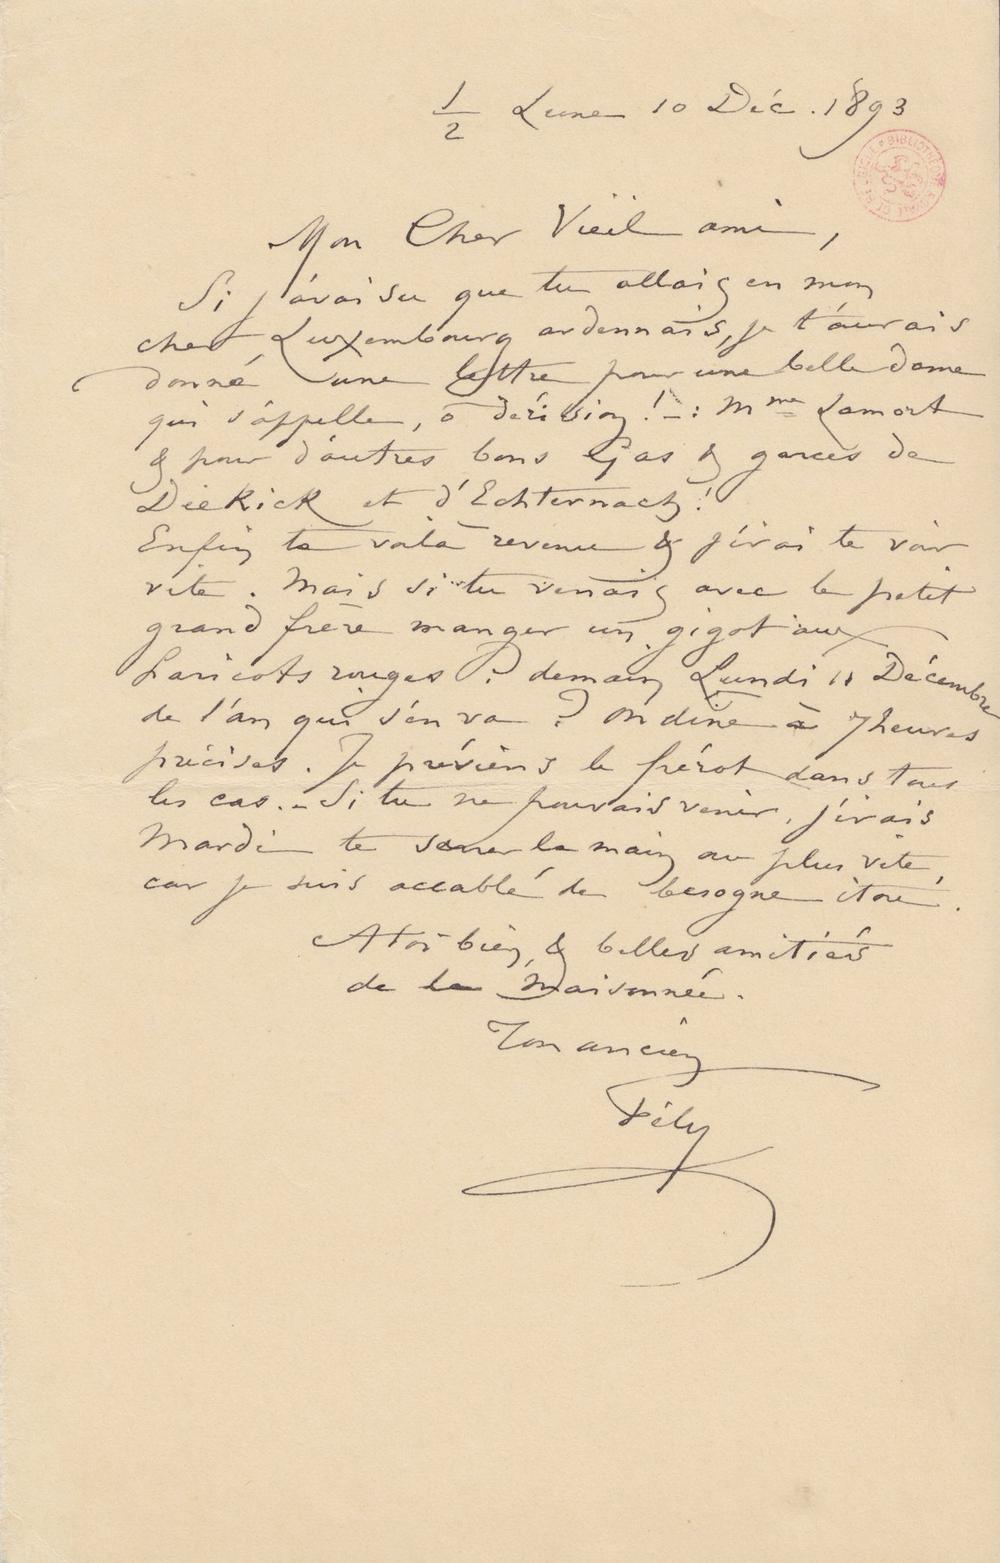 1/2 Lune 10 Déc. 1893
BIBLIOTHÈQUE ROYALE DE BELGIQUE
Mon Cher Vieil ami,
Si j'avais su que tu allais en mon
cher Luxembourg ardennais, je t'aurais
donné une lettre pour une belle dame
qui s'appelle, ô dérision ! - : Mme Lamort
& pour d'autres bons Gas & garces de
Diekick et d'Echternach !
Enfin te voilà revenu & j'irai te voir
vite. Mais si tu venais avec le petit
grand frère manger un gigot aux
haricots rouges ? demain Lundi 11 Décembre
de l'an qui s'en va ? On dîne à 7 heures
précises. Je préviens le frérot dans tous
les cas. - Si tu ne pouvais venir, j'irais
Mardi te serrer la main au plus vite,
car je suis accablé de besogne itou.
A toi bien, & belles amitiés
de la Maisonnée.
Ton ancien
Fély